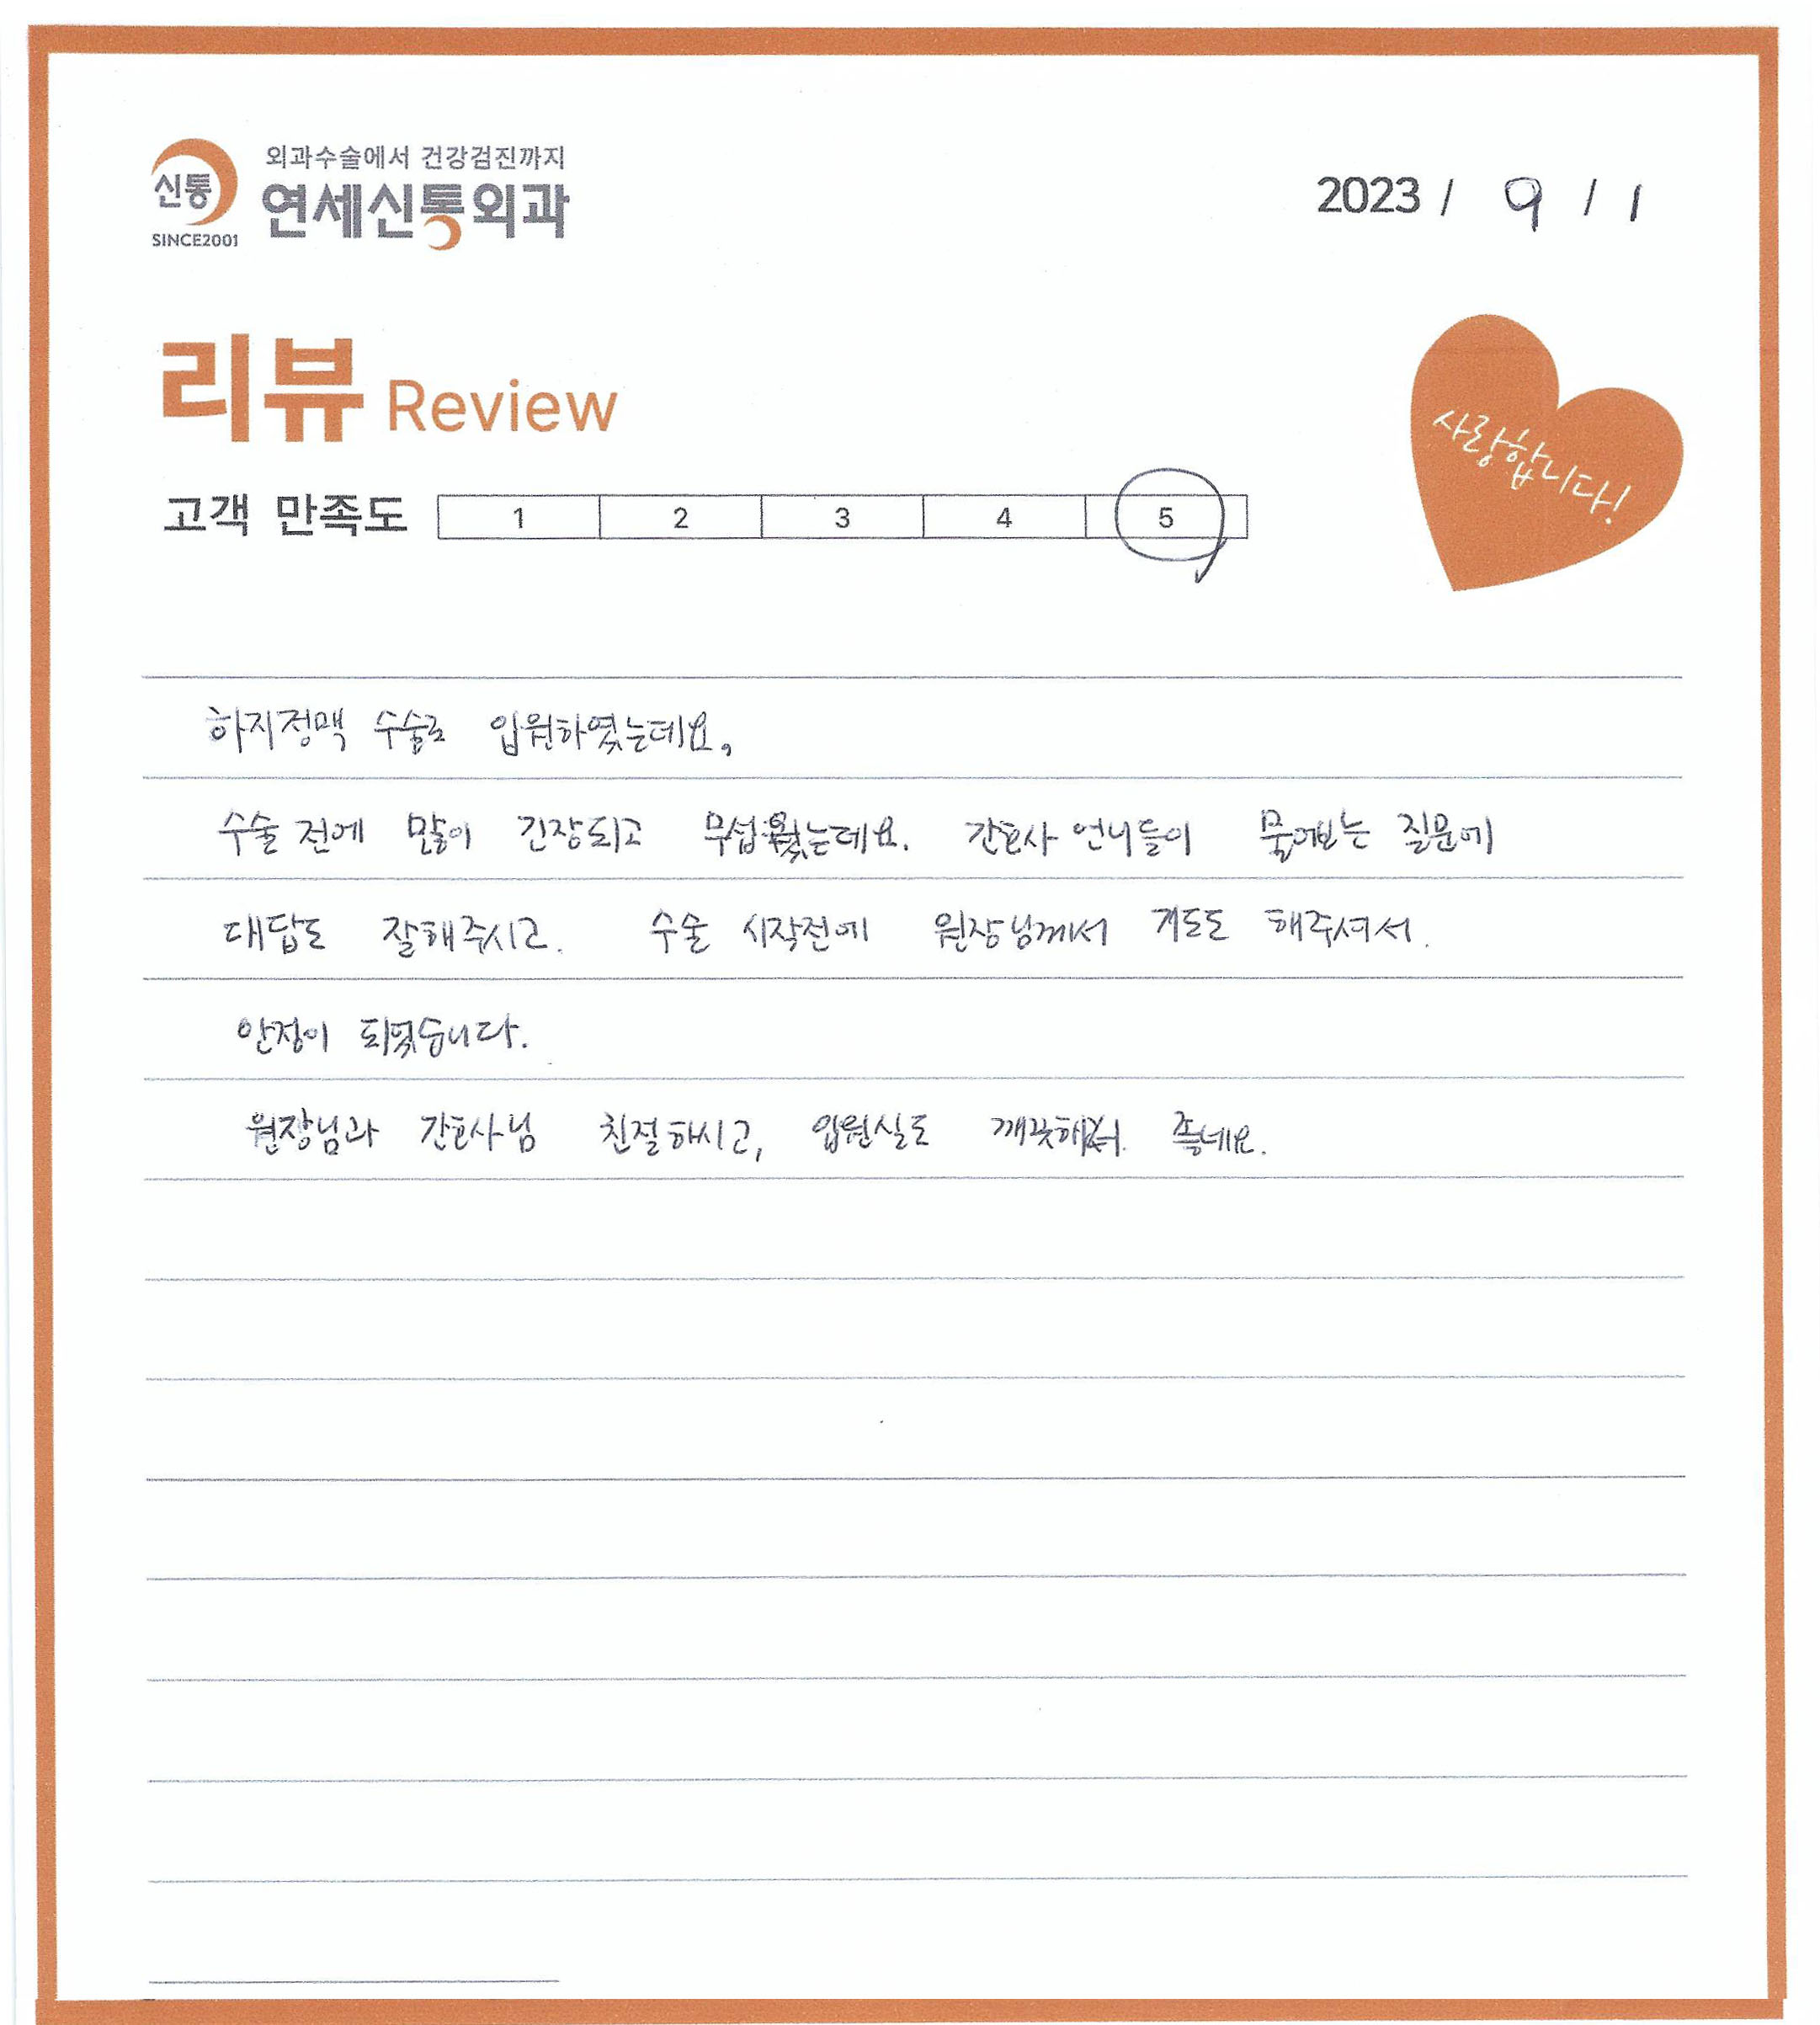 외과수술에서 건강검진까지
신통 연세신통외과
SINCE2001
2023 / 9 / 1
리뷰 Review
사랑합니다!
고객 만족도 1 2 3 4 5
하지정맥 수술로 입원하였는데요,
수술 전에 많이 긴장되고 무섭웠는데요. 간호사 언니들이 물어보는 질문에
대답도 잘해주시고. 수술 시작전에 원장님께서 기도도 해주셔서.
안정이 되었습니다.
원장님과 간호사님 친절하시고, 입원실도 깨끗해서 좋네요.